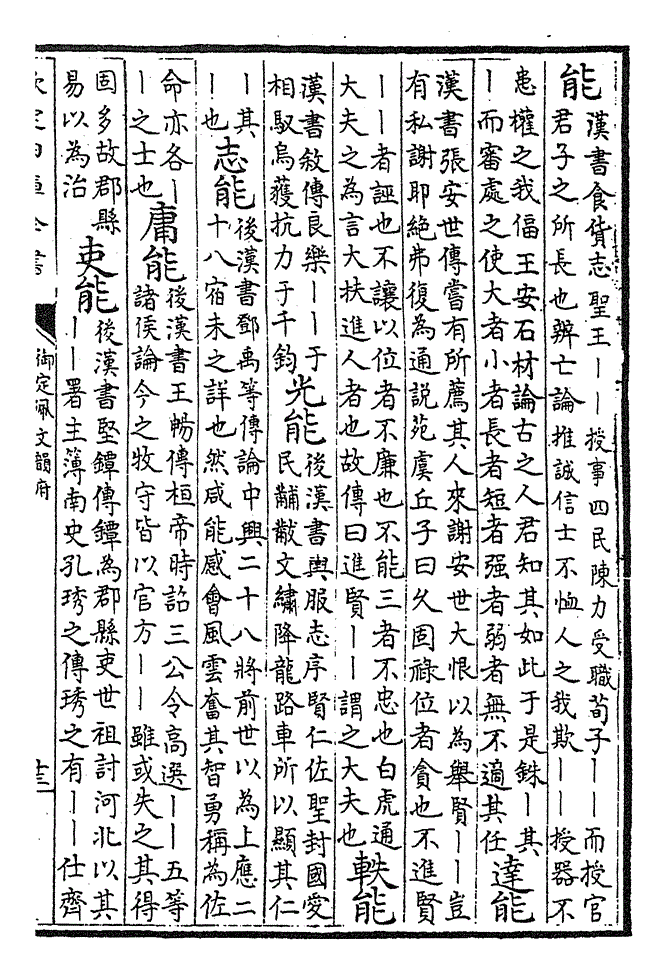 能
漢書食貨志聖王丨丨授事四民陳力受職荀子丨丨而授官
君子之所長也辨亡論推誠信士不恤人之我欺丨丨授器不
患權之我偪王安石材論古之人君知其如此于是銖丨其
丨而審處之使大者小者長者短者强者弱者無不適其任
達能
漢書張安世傳嘗有所薦其人來謝安世大恨以為舉賢丨丨豈
有私謝耶絶弗復為通說苑虞丘子曰久固祿位者貪也不進賢
丨丨者誣也不讓以位者不廉也不能三者不忠也白虎通
大夫之為言大扶進人者也故傳曰進賢丨丨謂之大夫也
軼能
漢書敘傳良樂丨丨于
相馭烏獲抗力于千鈞
光能
後漢書輿服志序賢仁佐聖封國愛
民黼黻文繡降龍路車所以顯其仁
丨其
丨也
志能
後漢書鄧禹等傳論中興二十八將前世以為上應二
十八宿未之詳也然咸能感會風雲奮其智勇稱為佐
命亦各丨
丨之士也
庸能
後漢書王暢傳桓帝時詔三公令高選丨丨五等
諸侯論今之牧守皆以官方丨丨雖或失之其得
固多故郡縣
易以為治
吏能
後漢書堅鐔傳鐔為郡縣吏世祖討河北以其
丨丨署主簿南史孔琇之傳琇之有丨丨仕齊
欽定四庫全書
御定佩文韻府